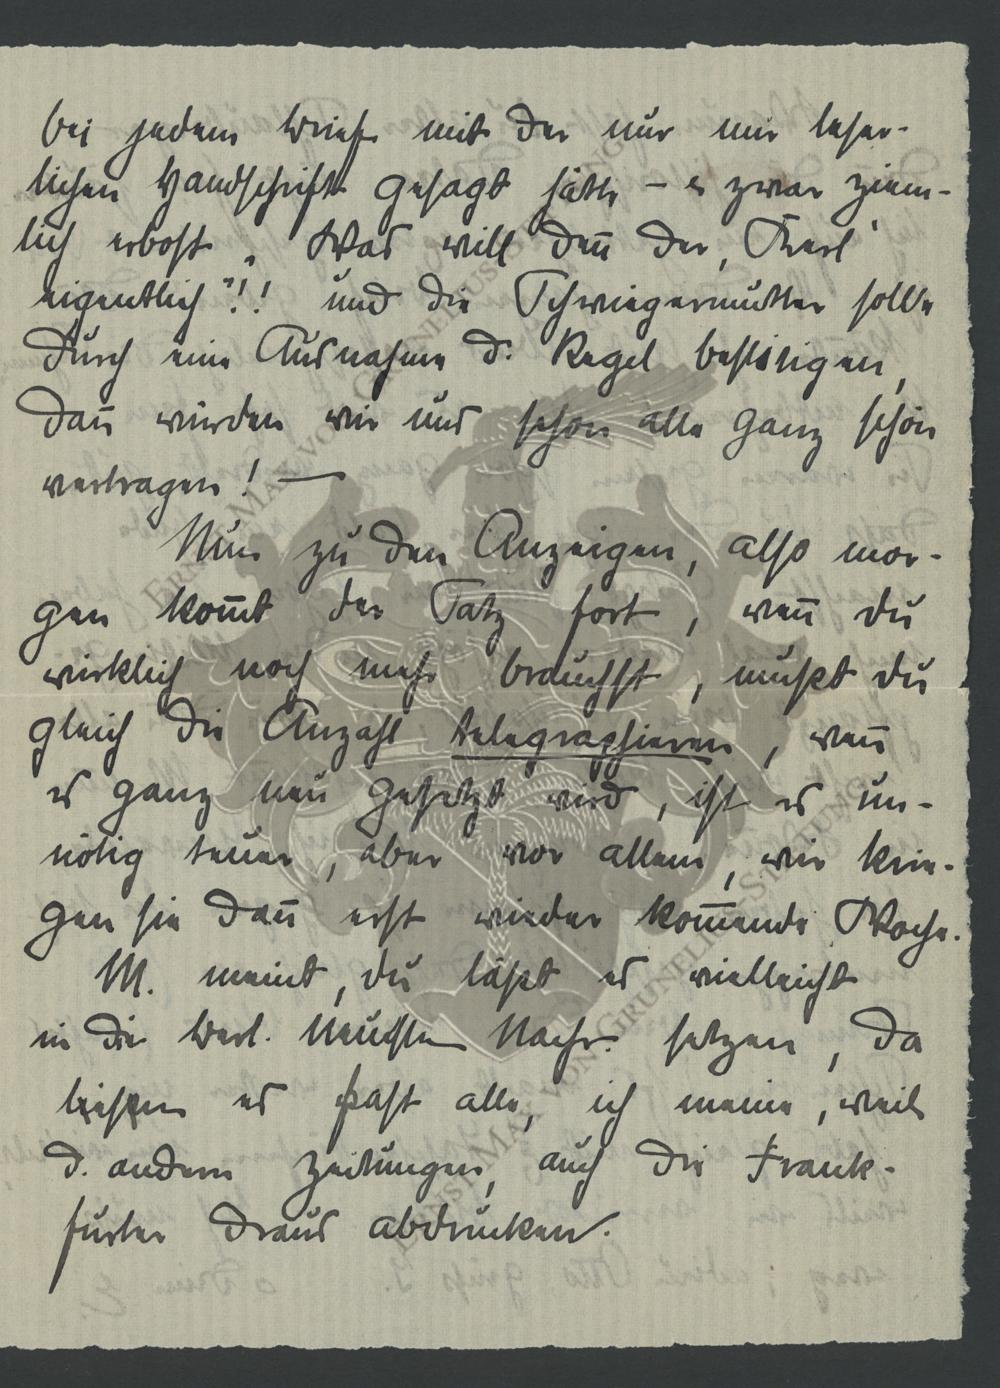 bei jedem Briefe mit der nur mir leser-
lichen Handschrift gesagt hätte – u zwar ziem-
lich erbost „ Was will den̄ der ‚Kerl‘
eigentlich"!! und die Schwiegermutter solle
durch eine Ausnahme d. Regel bestätigen,
dan̄ würden wir uns schon alle ganz schön
vertragen! —
Nun zu den Anzeigen, also mor-
gen kom̄t der Satz fort, wen̄ du
wirklich noch mehr brauchst, mußt du
gleich die Anzahl telegraphieren, wen̄
es ganz neu gesetzt wird, ist es un-
nötig teuer, aber vor allem, wir krie-
gen sie dan̄ erst wieder kom̄ende Woche.
M. meint, du läßt es vielleicht
in die Berl. Neusten Nachr. setzen, da
es fast alle, ich meine, weil
d. andern Zeitungen, auch die Frank-
furter draus abdrucken.
ERNST MAX VON GRUNELIUS-STIFTUNG
ERNST MAX VON GRUNELIUS-STIFTUNG